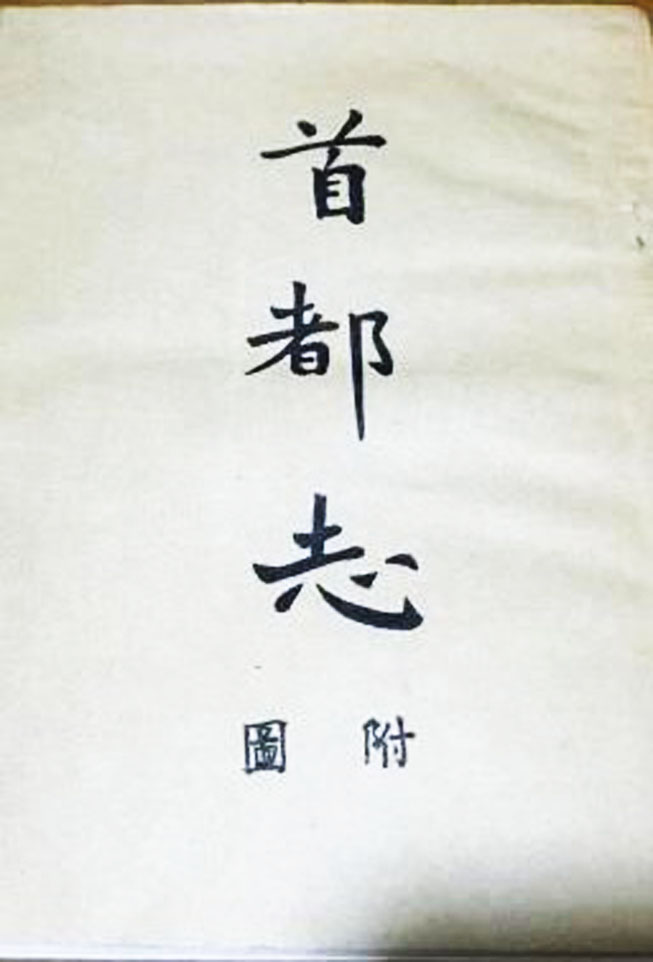 首都志
附圖